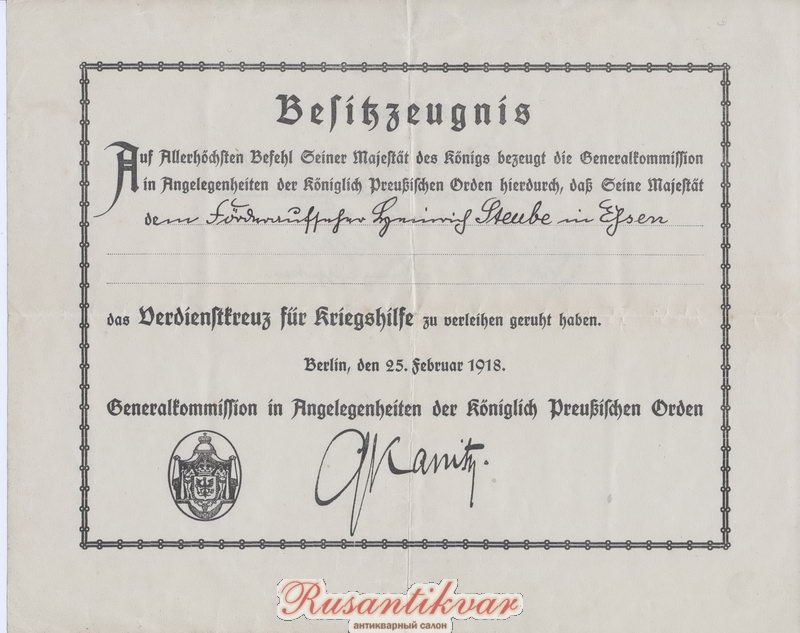 Besitzzeugnis
Auf Allerhöchsten Befehl Seiner Majestät des Königs bezeugt die Generalkommission
in Angelegenheiten der Königlich Preußischen Orden hierdurch, daß Seine Majestät
dem Förderaufseher Heinrich Steube in Essen
das Verdienstkreuz für Kriegshilfe zu verleihen geruht haben.
Berlin, den 25. Februar 1918.
Generalkommission in Angelegenheiten der Königlich Preußischen Orden
GKanitz.
Rusantikvar
антикварный салон